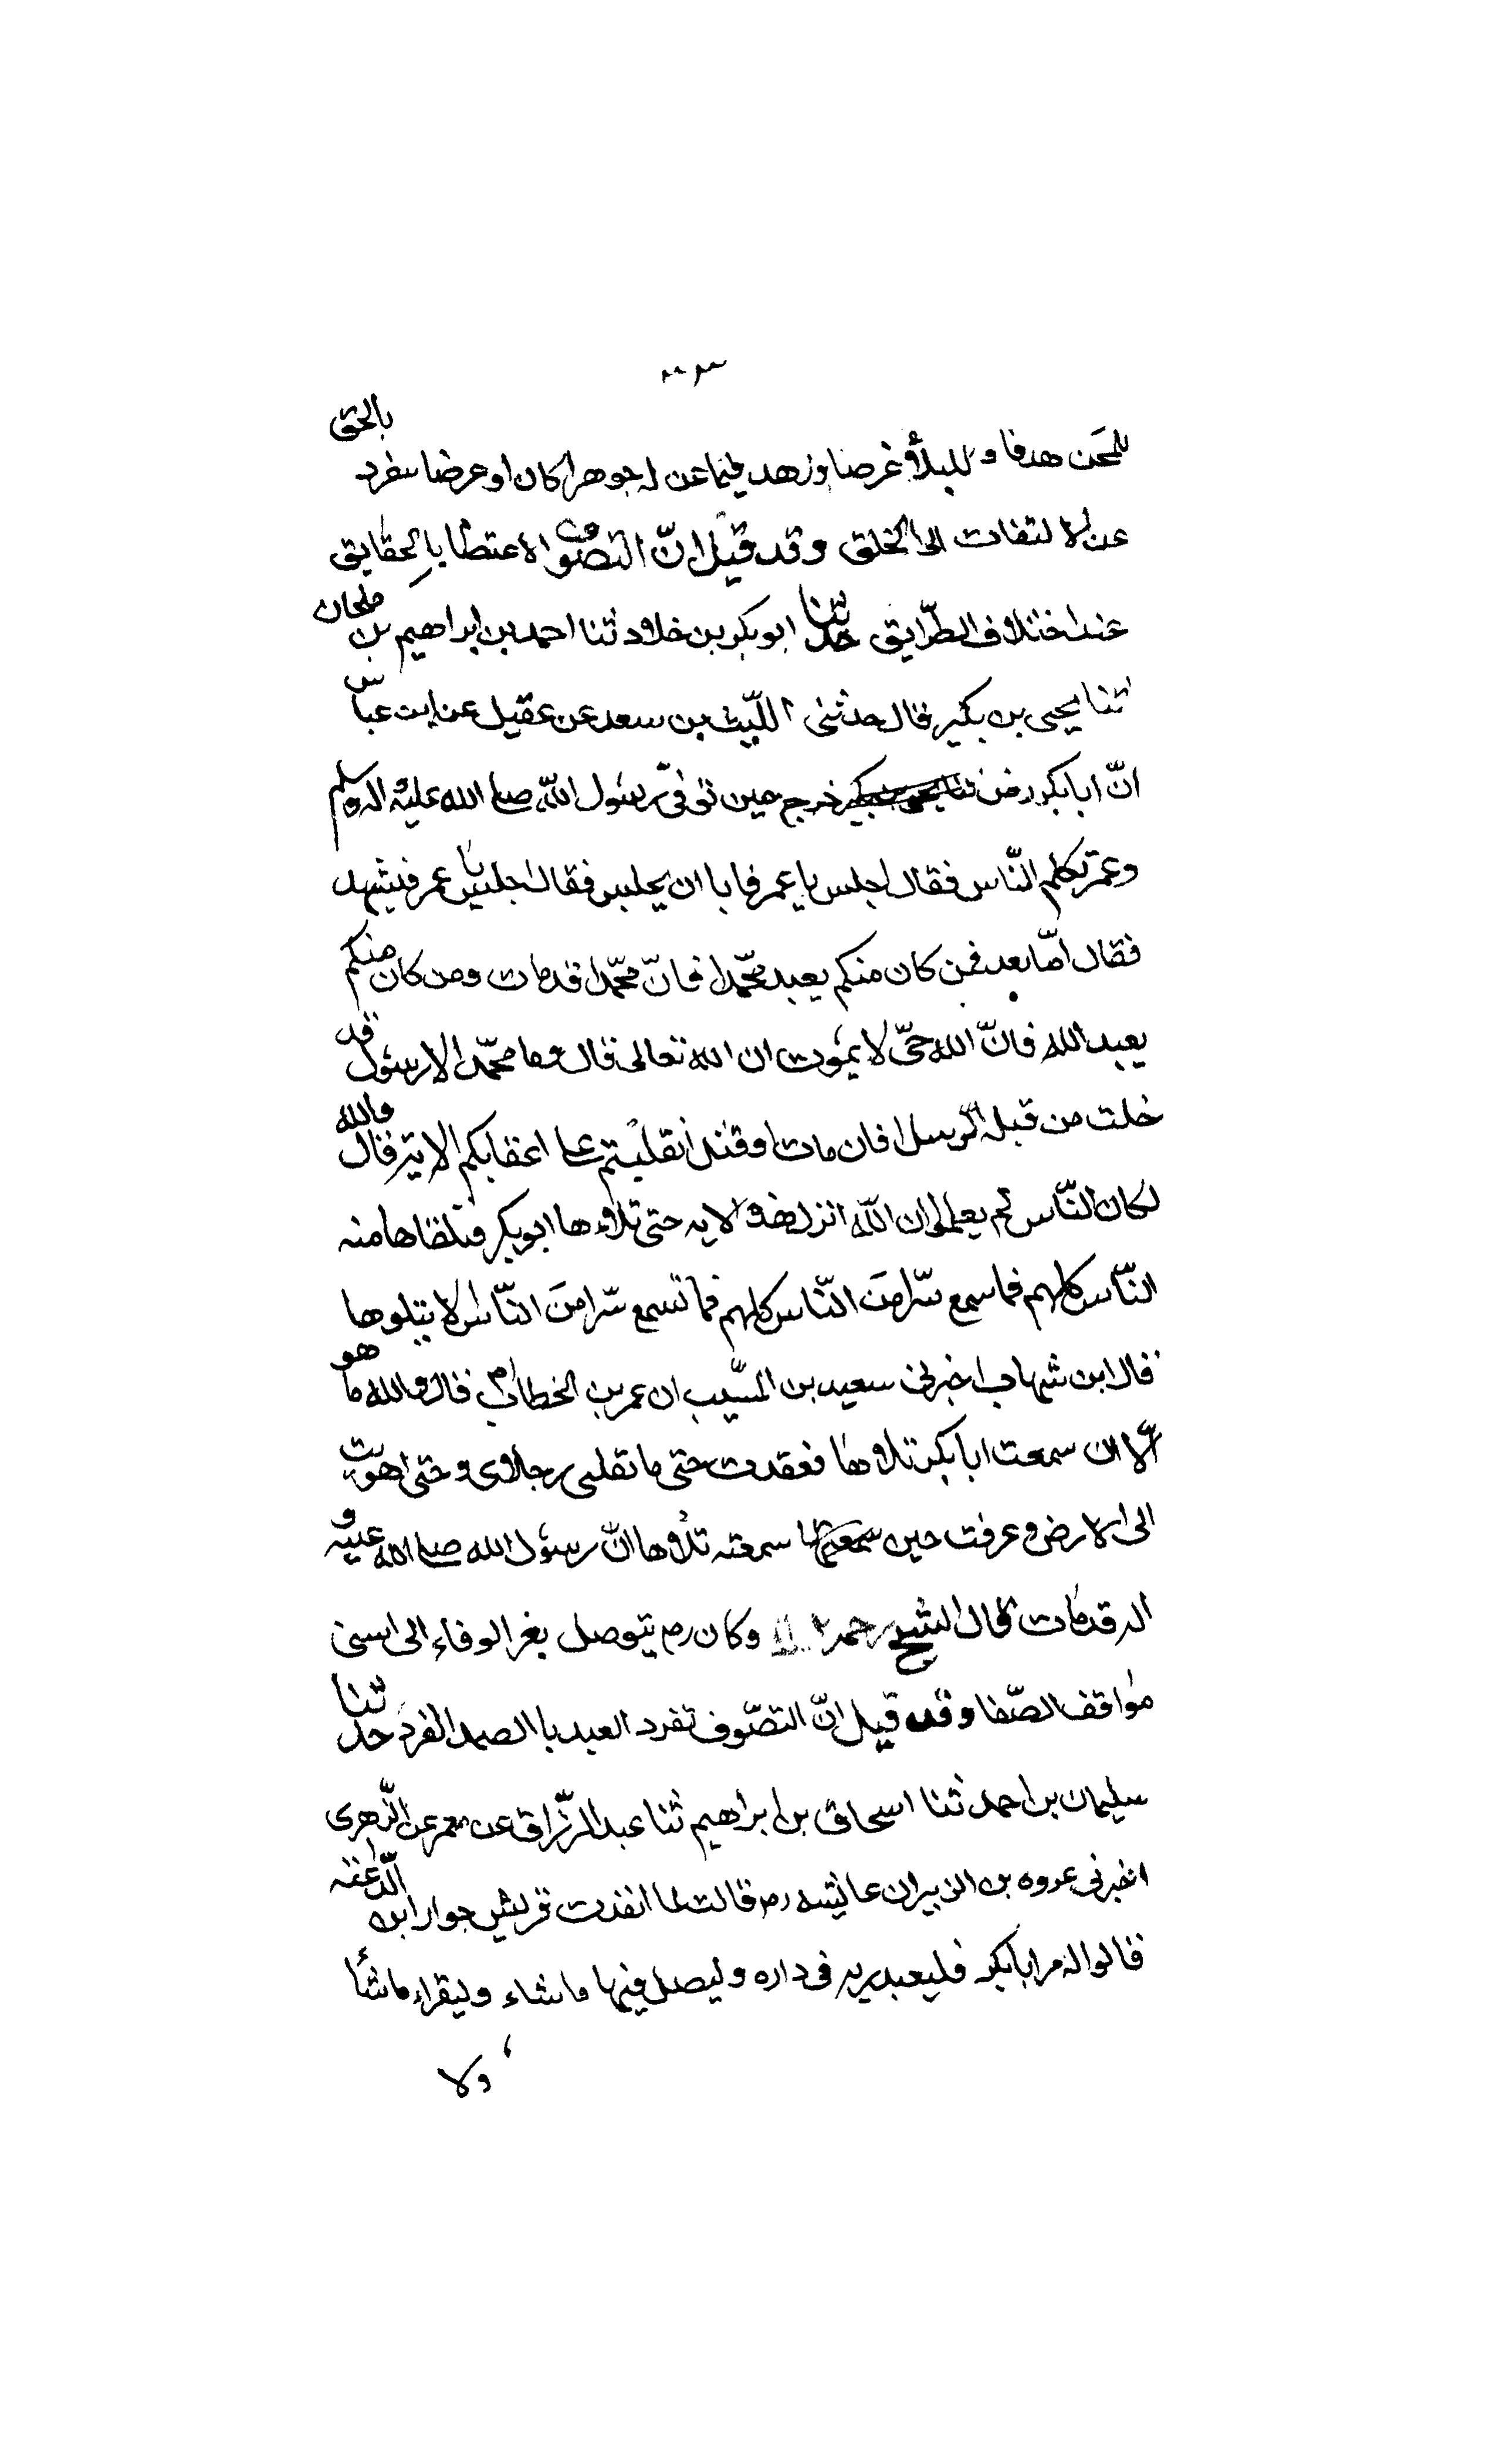 للمحن هدفا وللبلاء غرضا وزهد فيما عن له جوهرا كان او عرضا تفرد بالحق
عن الالتفات الى الخلق وقد قيل انّ التصوف الاعتصا بالحقايق
عند اختلاف الطّرايق حدثنا ابو بكر بن خلاد ثنا احمد بن ابراهيم بن ملحان
ثنا يحيى بن بكير قال حدثنى اللّيث بن سعد عن عقيل عن ابن عبّاس
انّ ابا بكر رض خرج حين توفىّ رسول اللّه صلى الله عليه اله وسلم
وعمر يكلم النّاس فقال اجلس يا عمر فابا ان يجلس فقال اجلس يا عمر فتشهد
فقال امّا بعد فمن كان منكم يعبد محمّدا فانّ محمّدا قد مات ومن كان منكم
يعبد الله فانّ الله حىّ لا يموت ان الله تعالى قال وما محمّد الا رسول قد
خلت من قبله الرسل افان مات او قتل انقلبتم على اعقابكم الاية قال والله
لكان النّاس لم يعلموا ان اللّه انزل هذه الايه حتى تلاوها ابو بكر فتلقاها منه
النّاس كلهم فما سمع سّرا منَ النّاس كلهم فما تسمع سّرا منَ النّاس الا يتلوها
قال ابن شهاب اخبرنى سعيد بن المسيّب ان عمر بن الخطاب رض قال والله ما هو
الّا ان سمعت ابا بكر تلاوها فعقدت حتى ما تقلبى رجلاوى وحتى اهويت
الى الارض وعرفت حين سمعتها سمعته تلاوها انّ رسول الله صلى الله عليه و
اله قد مات قال الشيخ رحمه وكان رض يتوصل بغر الوفاء الى اسنى
مواقف الصّفا وقد قيل انّ التصّوف تفرد العبد باالصمد الفرد حدثنا
سليمان بن احمد ثنا اسحاق بن ابراهيم ثنا عبد الرّزاق عن معمر عن الزّهرى
اخبرنى عروه بن الزبير ان عايشه رض قالت لما انفذت قريش جوار ابن الدّغنه
قالوا له مر ابابكر فليعبد ربه فى داره وليصل فيها ما شاء وليقراء ما شأ
ولا